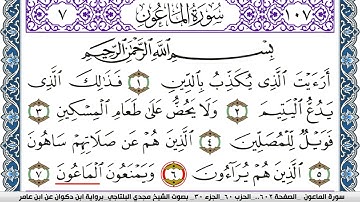 ٧ سُورَةُ المَاعُونِ ١٠٧
بِسْمِ اللَّهِ الرَّحْمَٰنِ الرَّحِيمِ
أَرَءَيْتَ الَّذِى يُكَذِّبُ بِالدِّينِ ١ فَذَٰلِكَ الَّذِى
يَدُعُّ الْيَتِيمَ ٢ وَلَا يَحُضُّ عَلَىٰ طَعَامِ الْمِسْكِينِ ٣
فَوَيْلٌ لِّلْمُصَلِّينَ ٤ الَّذِينَ هُمْ عَن صَلَاتِهِمْ سَاهُونَ
٥ الَّذِينَ هُمْ يُرَآءُونَ ٦ وَيَمْنَعُونَ الْمَاعُونَ ٧
سورة الماعون .. الصفحة ٦٠٢ .. الحزب ٦٠ .. الجزء ٣٠ .. بصوت الشيخ مجدي البلتاجي .. برواية ابن ذكوان عن ابن عامر